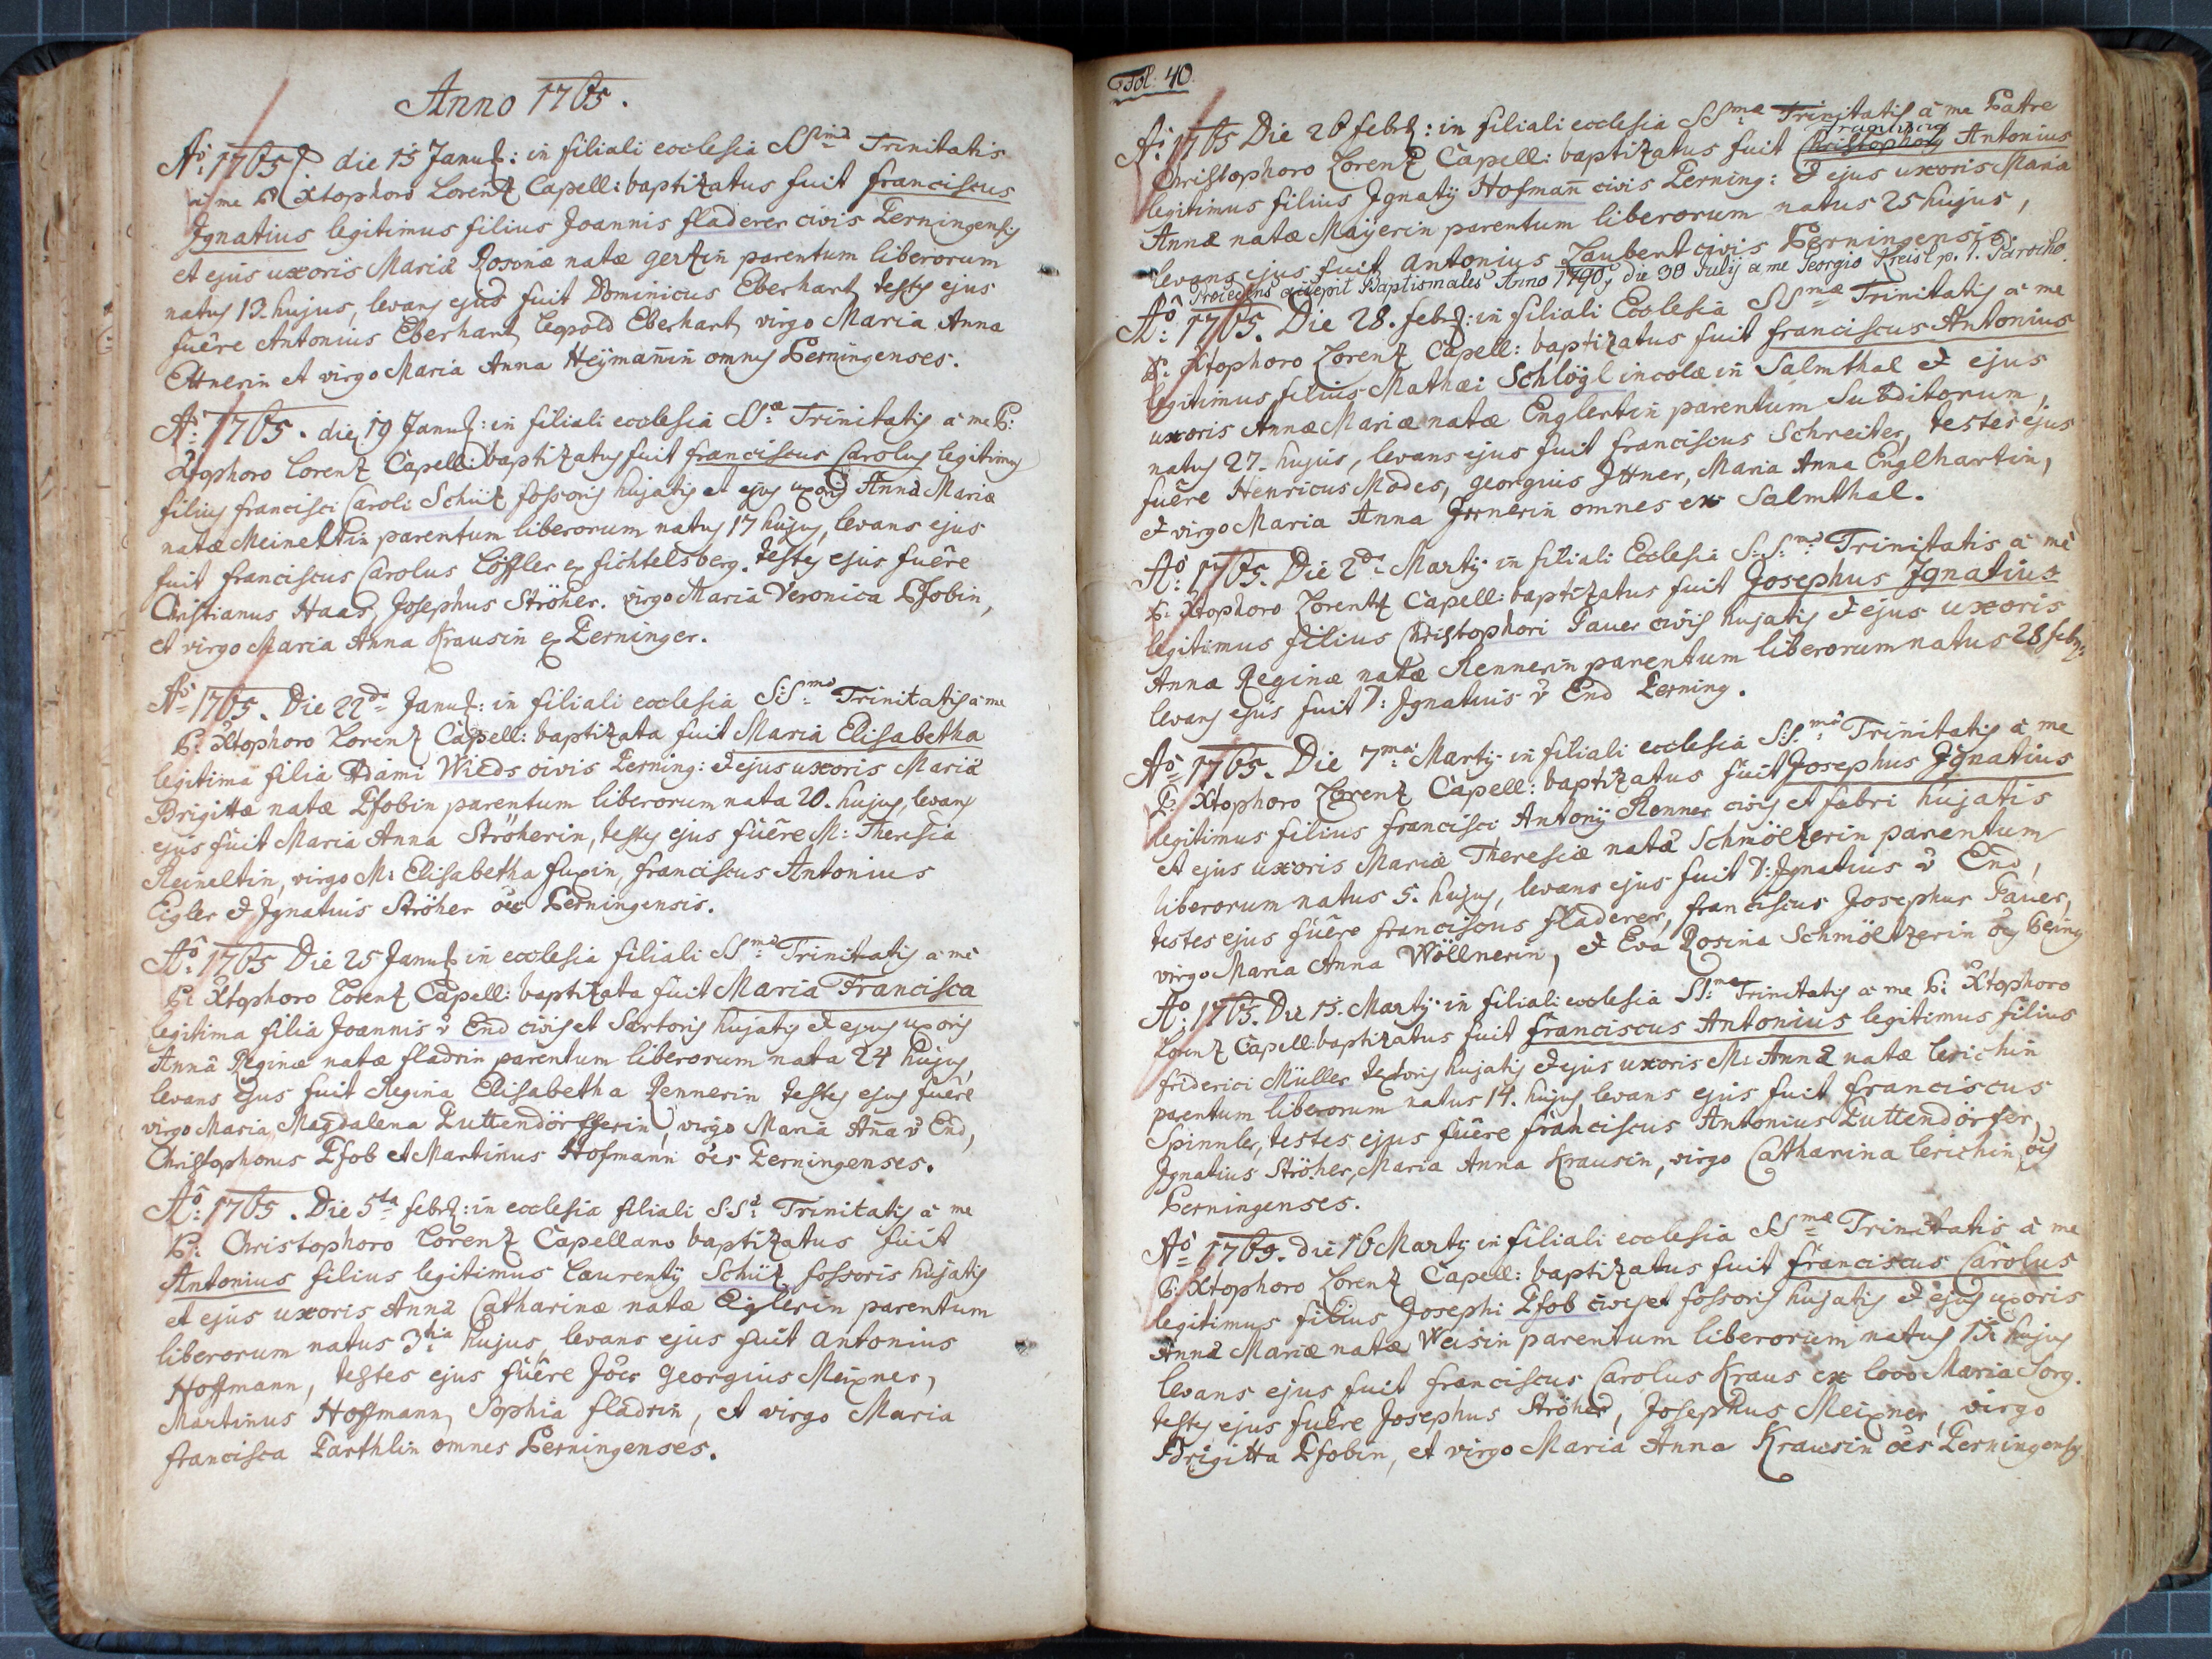 Anno 1765.
Ao: 1765. die 15 Janu: in filiali ecclesia SSmae Trinitatis
a me P. Xtophoro Lorenz Capell: baptizatus fuit franciscus
Ignatius legitimus filius Joannis fladerer civis Perningensis
et ejus uxoris Mariæ Rosinæ natæ parentum liberorum
natus 13. hujus, levans ejus fuit Dominicus Eberhart, testes ejus
fuêre Antonius Eberhart, Leopold Eberhart, virgo Maria Anna
et virgo Maria Anna Heÿmañin omnes Perningenses.
Ao: 1765. die 19 Janu: in filiali ecclesia SSæ Trinitatis a me P:
Xtophoro Lorenz Capell: baptizatus fuit franciscus Carolus legitimus
filius francisci Caroli Schüz fossoris hujatis et ejus uxoris Annæ Mariæ
natæ Meineltin parentum liberorum natus 17 hujus, levans ejus
fuit franciscus Carolus Löffler ex fichtelsberg. testes ejus fuêre
Christianus Haas, Josephus Ströher. virgo Maria Veronica Pfobin,
et virgo Maria Anna Krausin ex Perninger.
Ao 1765. Die 22da Janu: in filiali ecclesia S:Sma Trinitatis a me
P: Xtophoro Lorenz Capell: baptizata fuit Maria Elisabetha
legitima filia Adami Wilds civis Perning: & ejus uxoris Mariæ
Brigittæ natæ Pfobin parentum liberorum nata 20. hujus, levans
ejus fuit Maria Anna Ströherin, testes ejus fuêre M: Theresia
Reineltin, virgo M: Elisabetha fuxin, franciscus Antonius
Eigler & Ignatius Ströher oēs Perningensis.
Ao: 1765 Die 25 Janu: in ecclesia filiali SSmæ Trinitatis a me
P: Xtophoro Lorenz Capell: baptizata fuit Maria Francisca
legitima filia Joannis v End civis et Sartoris hujatis & ejus uxoris
Annæ Reginæ natæ fladrin parentum liberorum nata 24 hujus,
levans ejus fuit Regina Elisabetha Rennerin testes ejus fuêre
virgo Maria Magdalena Puttendörfferin, virgo Maria Aña v End,
Christophorus Pfob et Martinus Hofmann oēs Perningenses.
Ao: 1765. Die 5ta febr: in ecclesia filiali S:Sæ Trinitatis a me
P: Christophoro Lorenz Capellano baptizatus fuit
Antonius filius legitimus Laurentÿ Schüz fossoris hujatis
et ejus uxoris Annæ Catharinæ natæ Eiglerin parentum
liberorum natus 3tia hujus, levans ejus fuit Antonius
Hoffmann, testes ejus fuêre Joēs Georgius Meixner,
Martinus Hoffmann, Sophia fladrin, et virgo Maria
francisca Parthlin omnes Perningenses.
Fol: 40.
Ao: 1765 Die 26 febr: in filiali ecclesia SSmæ Trinitatis a me Patre
franciscus
Christophoro Lorenz Capell: baptizatus fuit Christophorus Antonius
legitimus filius Ignatÿ Hofmañ civis Perning: & ejus uxoris Maria
Annæ natæ Maÿerin parentum liberorum natus 25 hujus,
levans ejus fuit Antonius Laubert civis Perningensis.
Procedens accepit Baptismales Anno 1790, die 30 Julÿ a me Georgio Kreisl p. t. Parocho.
Ao: 1765. Die 28. febr: in filiali Ecclesia SSmæ Trinitatis a me
P: Xtophoro Lorenz Capell: baptizatus fuit franciscus Antonius
legitimus filius Mathæi Schlögl incolæ in Salmthal & ejus
uxoris Annæ Mariæ natæ Englertin parentum Subditorum,
natus 27. hujus, levans ejus fuit franciscus Schreiter, testes ejus
fuêre Henricus Modes, Georgius Ittner, Maria Anna Englhartin,
& virgo Maria Anna omnes ex Salmthal.
Ao: 1765. Die 2da Martÿ in filiali Ecclesia S:S:mæ Trinitatis a me
P: Xtophoro Lorentz Capell: baptizatus fuit Josephus Ignatius
legitimus filius Christophori Pauer civis hujatis & ejus uxoris
Annæ Reginæ natæ Rennerin parentum liberorum natus 28 febr:
levans ejus fuit D: Ignatius v End Perning.
Ao 1765. Die 7ma Martÿ in filiali ecclesia S:S:mæ Trinitatis a me
P: Xtophoro Lorenz Capell: baptizatus fuit Josephus Ignatius
legitimus filius francisci Antonÿ Renner civis et fabri hujatis
et ejus uxoris Mariæ Theresiæ natæ Schmöltzerin parentum
liberorum natus 5. hujus, levans ejus fuit D: Ignatius v End,
testes ejus fuêre franciscus fladerer, franciscus Josephus Pauer,
virgo Maria Anna Wöllnerin, & Eva Rosina Schmöltzerin
Ao: 1765. Die 15. Martÿ in filiali ecclesia SS:mæ Trinitatis a me P: Xtophoro
Lorenz Capell: baptizatus fuit franciscus Antonius legitimus filius
friderici Müller textoris hujatis & ejus uxoris M: Annæ natæ Lerichin
parentum liberorum natus 14. hujus levans ejus fuit franciscus
Spinnler, testes ejus fuêre franciscus Antonius Puttendörfer,
Ignatius Ströher, Maria Anna Krausin, virgo Catharina Lerichin oēs
Perningenses.
Ao 1769. die 16 Martÿ in filiali ecclesia SSmæ Trinitatis a me
P: Xtophoro Lorenz Capell: baptizatus fuit franciscus Carolus
legitimus filius Josephi Pfob civis et fossoris hujatis & ejus uxoris
Annæ Mariæ natæ Weisin parentum liberorum natus 15 hujus
levans ejus fuit franciscus Carolus Kraus ex loco Maria Sorg.
testes ejus fuêre Josephus Ströher, Josephus Meixner, virgo
Brigitta Pfobin, et virgo Maria Anna Krausin oēs Perningenses